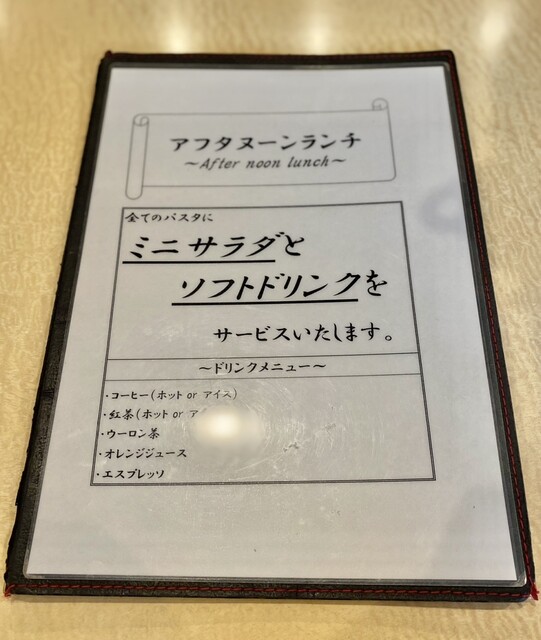 アフタヌーンランチ
～After noon lunch～
全てのパスタに
ミニサラダと
ソフトドリンクを
サービスいたします。
～ドリンクメニュー～
・コーヒー(ホット or アイス)
・紅茶(ホット or ア
・ウーロン茶
・オレンジジュース
・エスプレッソ